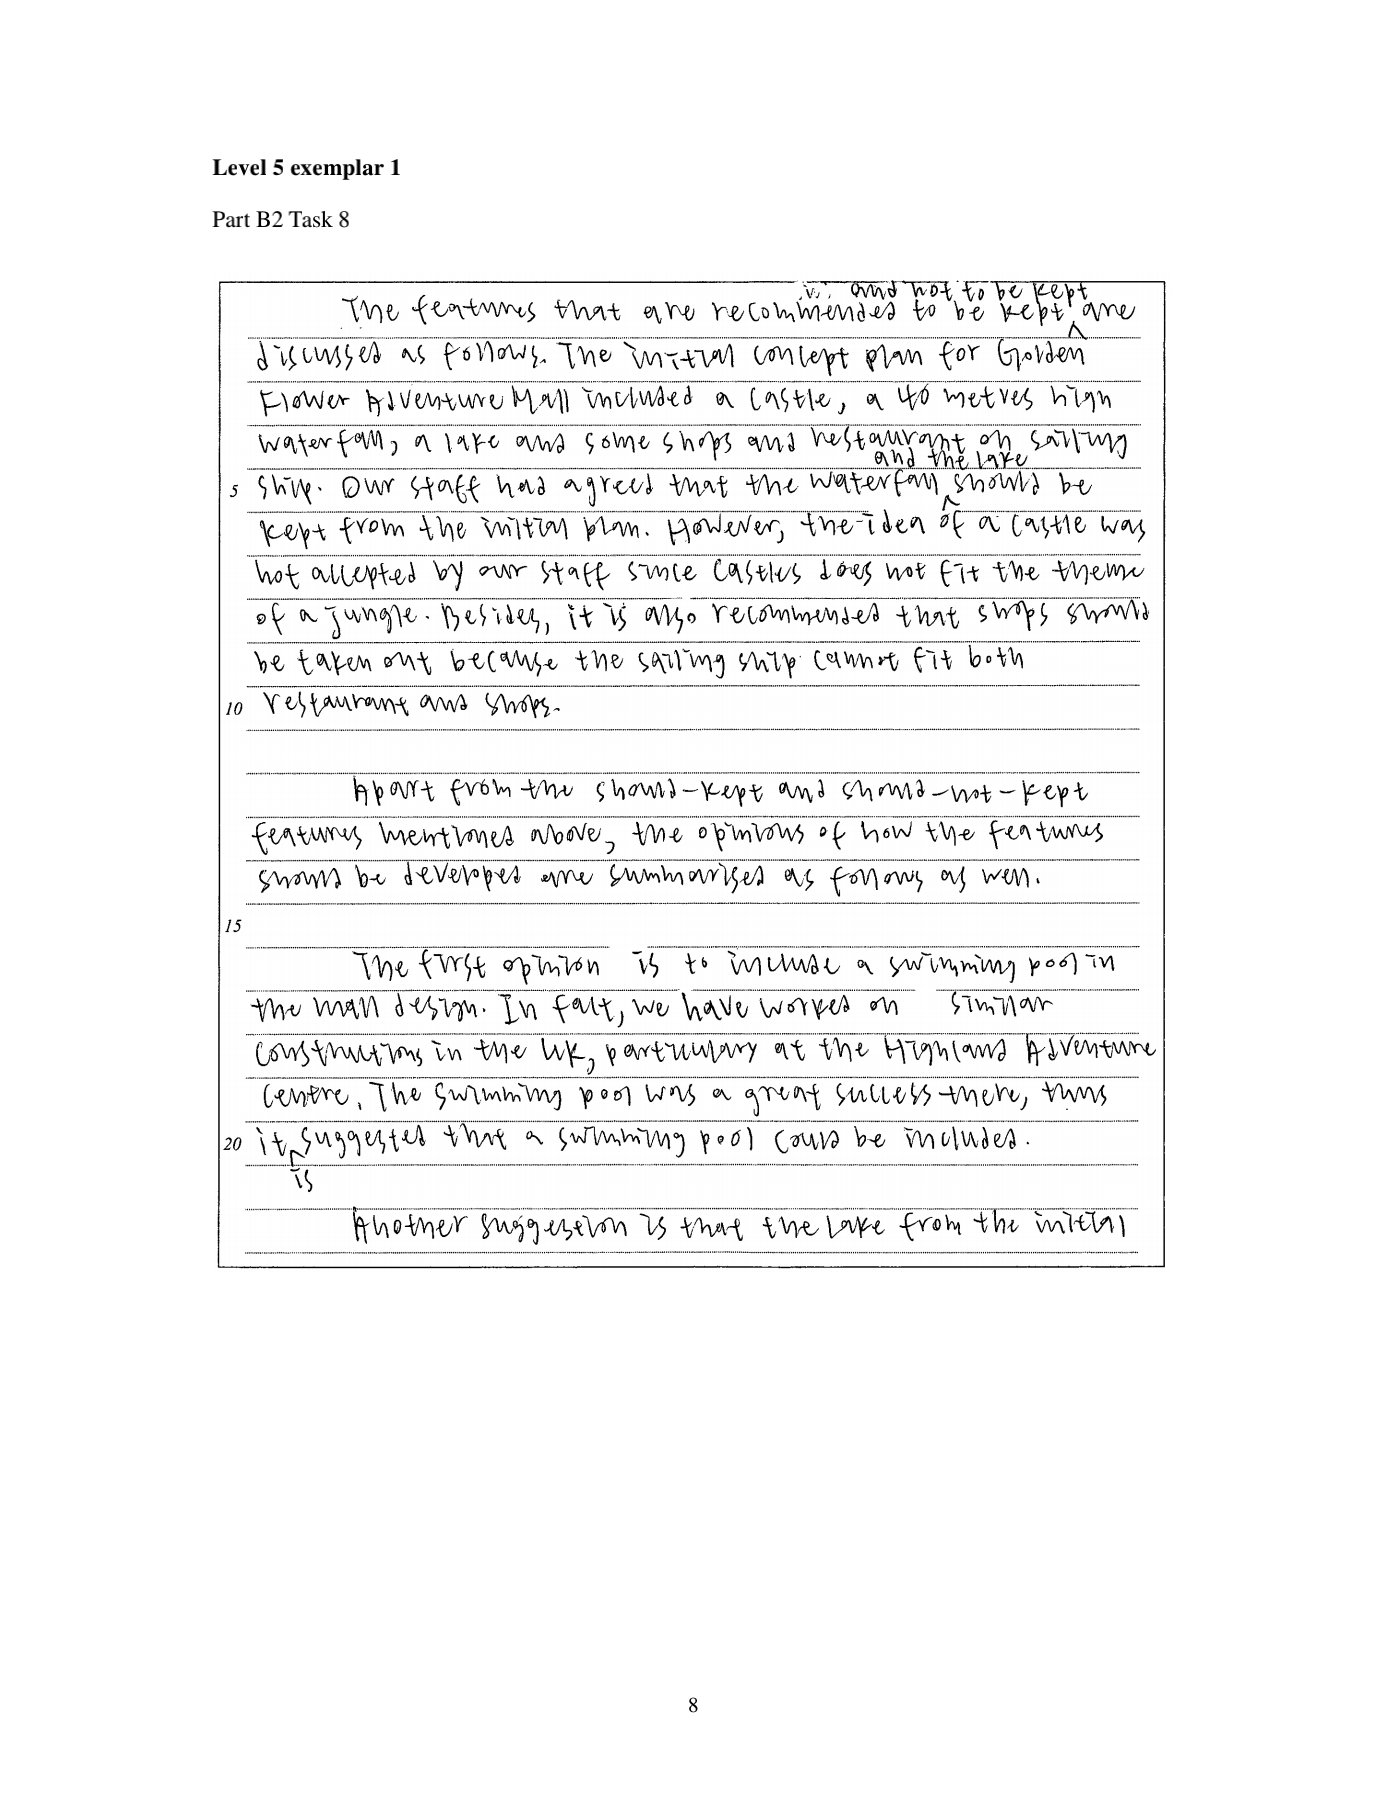 Level 5 exemplar 1
Part B2 Task 8
and not to be kept
The features that are recommended to be kept are
discussed as follows. The initial concept plan for Golden
Flower Adventure Mall included a castle, a 40 metres high
waterfall, a lake and some shops and restaurant on sailing
and the lake
5 ship. Our staff had agreed that the waterfall should be
kept from the initial plan. However, the idea of a castle was
not accepted by our staff since castles does not fit the theme
of a jungle. Besides, it is also recommended that shops should
be taken out because the sailing ship cannot fit both
10 restaurant and shops.
Apart from the should-kept and should-not-kept
features mentioned above, the opinions of how the features
should be developed are summarised as follows as well.
15
The first opinion is to include a swimming pool in
the mall design. In fact, we have worked on similar
constructions in the UK, particulary at the Highland Adventure
Centre. The swimming pool was a great success there, thus
20 it suggested that a swimming pool could be included.
is
Another suggestion is that the lake from the initial
8